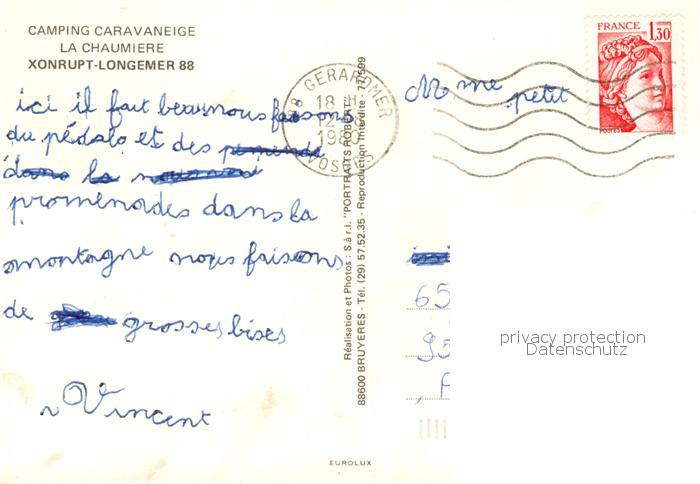 CAMPING CARAVANEIGE
LA CHAUMIERE
XONRUPT-LONGEMER 88
ici il fait beau nous faisons
du pédalo et des
dans la
promenades dans la
montagne nous faisons
de grosses bises
Vincent
88 GERARDMER
18 H
12
19
VOSGES
Réalisation et Photos : S à r.l. "PORTRAITS ROBERT"
88600 BRUYERES - Tél. (29) 57.52.35 - Reproduction Interdite - 77/599
EUROLUX
FRANCE 1,30
POSTES
M me petit
65
95
privacy protection
Datenschutz